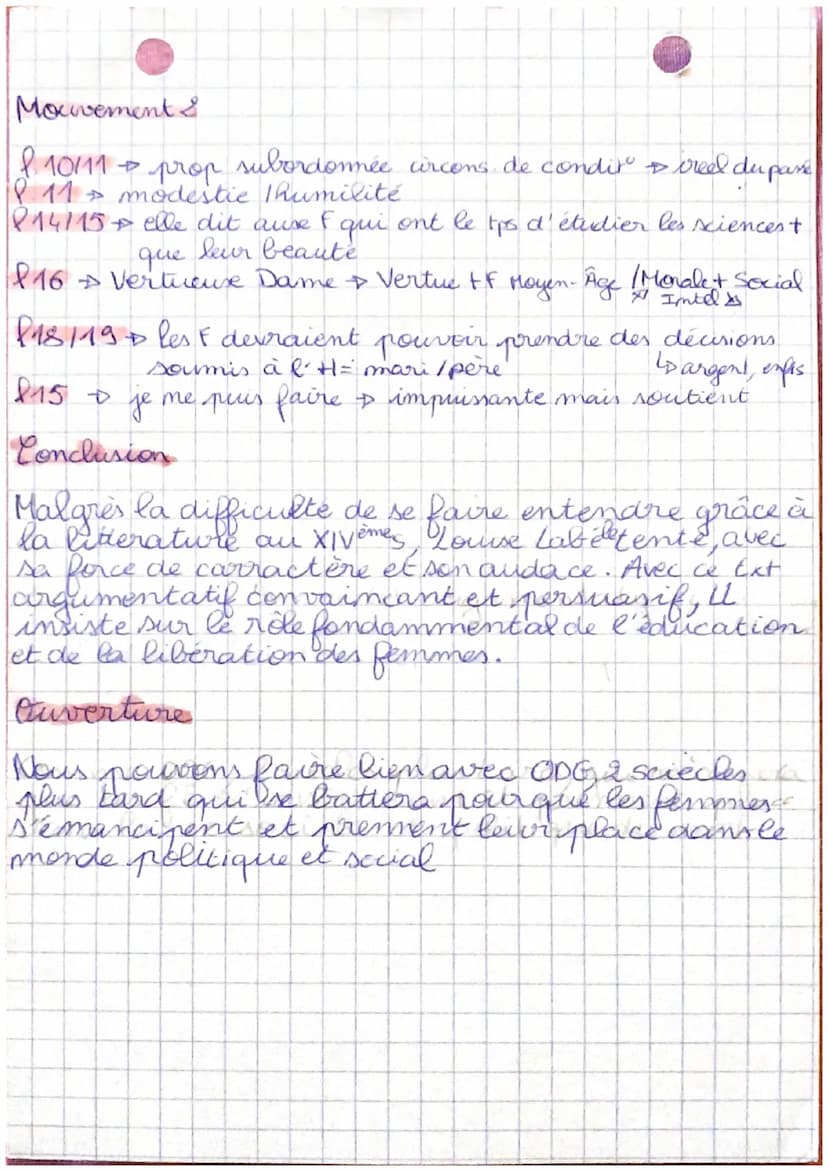 Mouvement 2
l 10/11 → prop subordonnée circons. de condit° → iréel du passé
l 11 → modestie / humilité
l 14/15 → elle dit aux F qui ont le tps d'étudier les sciences +
que leur beauté
l 16 → Vertueuse Dame → Vertue ± F Moyen-Âge / Morale + Social
Intel
l 18/19 → les F devraient pouvoir prendre des décisions
soumis à l'H = mari / père ↳ argent, enfts
l 15 → je me puis faire → impuissante mais soutient
Conclusion
Malgrès la difficulté de se faire entendre grâce à
la litterature au XIVèmes, Louise Labé le tente, avec
sa force de carractère et son audace. Avec ce txt
argumentatif convaincant et persuasif, LL
insiste sur le rôle fondammental de l'éducation
et de la libération des femmes.
Ouverture
Nous pouvons faire lien avec ODG, 2 sciècles
plus tard qui se battera pour que les femmes
s'émancipent et prennent leur place dans le
monde politique et social